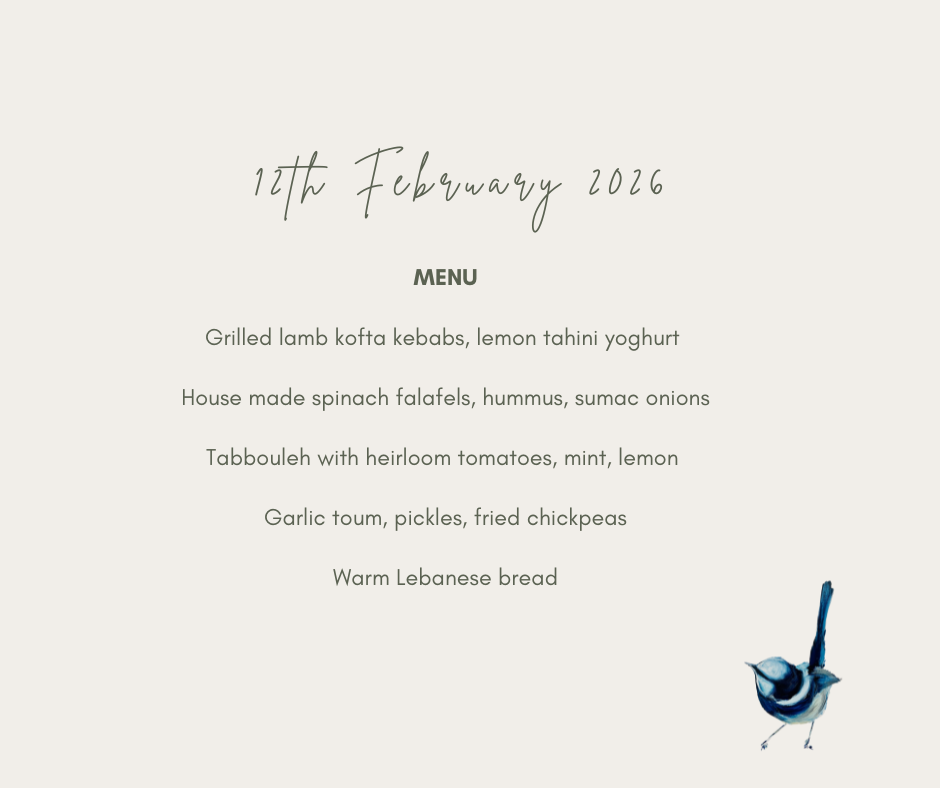 12th February 2026
MENU
Grilled lamb kofta kebabs, lemon tahini yoghurt
House made spinach falafels, hummus, sumac onions
Tabbouleh with heirloom tomatoes, mint, lemon
Garlic toum, pickles, fried chickpeas
Warm Lebanese bread